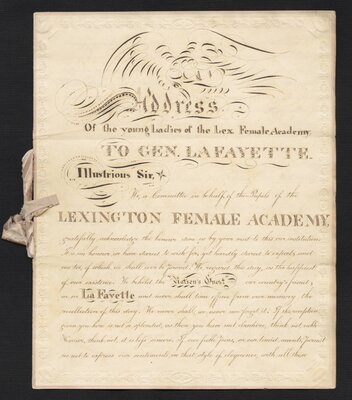 Address
Of the young Ladies of the Lex. Female Academy.
TO GEN. LAFAYETTE.
Illustrious Sir,
We, a Committee in behalf of the Pupils of the
LEXINGTON FEMALE ACADEMY,
gratefully acknowledge the honour done us by your visit to this our institution.
It is an honour, we have dared to wish for, yet hardly dared to expect, and
one too, of which we shall ever be proud. We regard this day, as the happiest
of our existence. We behold the Nation's Guest our country's friend,
in La Fayette and never shall time efface from our memory the
recollection of this day. We never shall, we never can forget it. If the reception
given you here is not as splendid, as those you have met elsewhere, think not noble
Warrior, think not, it is less sincere. If our feeble pens, or our timid minds forbid
us not to express our sentiments in that style of eloquence, with all those